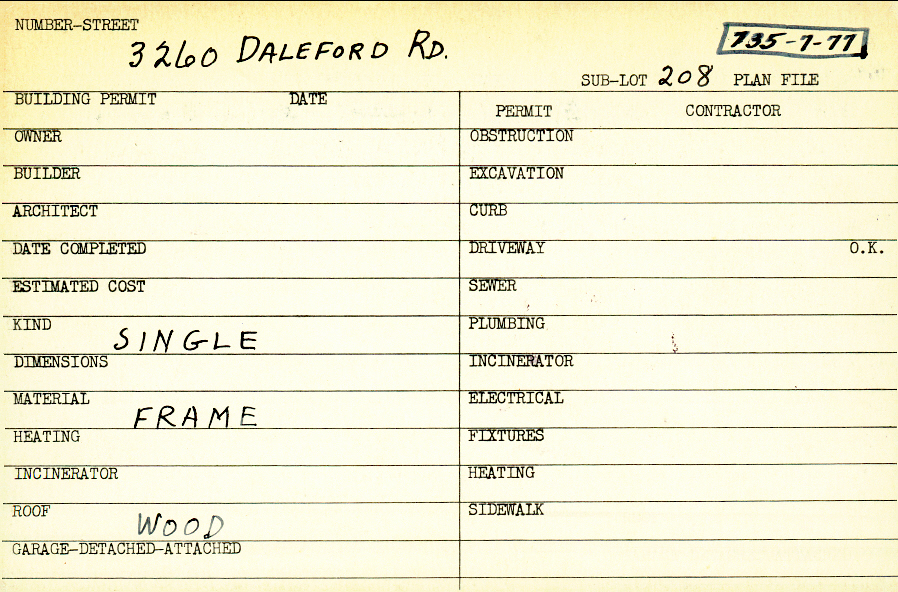 NUMBER-STREET
3260 DALEFORD RD.
735-7-77
SUB-LOT 208 PLAN FILE
BUILDING PERMIT DATE
PERMIT CONTRACTOR
OWNER
OBSTRUCTION
BUILDER
EXCAVATION
ARCHITECT
CURB
DATE COMPLETED
DRIVEWAY O.K.
ESTIMATED COST
SEWER
KIND SINGLE
PLUMBING
DIMENSIONS
INCINERATOR
MATERIAL FRAME
ELECTRICAL
HEATING
FIXTURES
INCINERATOR
HEATING
ROOF WOOD
SIDEWALK
GARAGE-DETACHED-ATTACHED